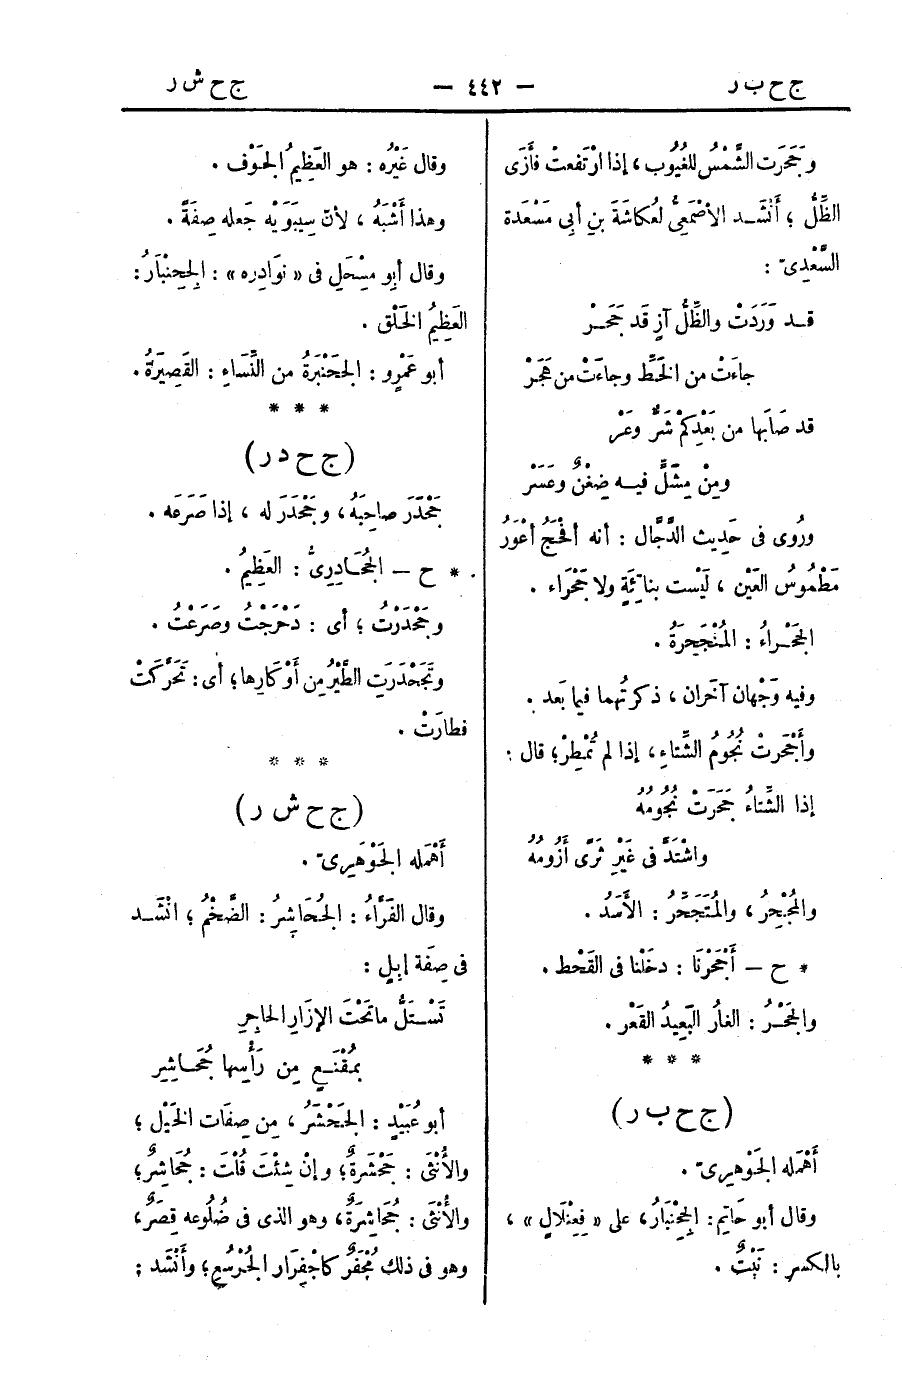 ج ح ب ر
— ٤٤٢ —
ج ح ش ر
وجَحَرَت الشَّمْسُ للغُيُوب، إذا ارْتَفعتْ فأَزَى
الظِّلُّ؛ أَنْشَد الأصْمَعِىُّ لعُكاشَةَ بنِ أبى مَسْعَدة
السَّعْدِىّ :
قد وَرَدَتْ والظِّلُّ آزٍ قَد جَحَرْ
جاءَتْ من الخَطِّ وجاءَتْ من هَجَرْ
قد صَابَها من بَعْدِكمْ شَرٌّ وعَرْ
ومِنْ مِشَلٍّ فيه ضِغْنٌ وعَسَرْ
ورُوى فى حَدِيث الدَّجَّال : أنه أفْحَجُ أعْوَرُ
مَطْمُوسُ العَيْن ، لَيْست بناتِئَةٍ ولا جَحْراء .
الجَحْراءُ : المُنْجَحِرَةُ .
وفيه وَجْهان آخَران ، ذكرتُهما فيما بَعد .
وأَجْحَرتْ نُجُومُ الشِّتاءِ، إذا لم تُمْطِرْ؛ قال :
إذا الشِّتاءُ جَحَرَتْ نُجُومُهُ
واشْتَدَّ فى غَيْرِ ثَرًى أَزُومُهُ
والمُجْحِرُ، والمُتَجَحِّرُ : الأَسَدُ .
* ح — أَجْحَرْنَا : دخَلْنا فى القَحْط .
والجَحْرُ : الغارُ البَعِيدُ القَعْر .
* * *
(ج ح ب ر)
أَهْمَله الجَوْهَرِىّ .
وقال أبو حَاتِم : الجِحِنْبَارُ، على « فِعِنْلَالٍ » ،
بالكسر : نَبْتٌ .
وقال غَيْرُه : هو العَظِيمُ الجَوْف .
وهذا أَشْبَهُ ، لأنّ سِيبَوَيْه جَعله صِفَةً .
وقال أبو مِسْحَلٍ فى « نوَادِره » : الجِحِنْبَارُ:
العَظِيمُ الخَلْق .
أبو عَمْرٍو : الجَحَنْبَرَةُ من النِّسَاءِ : القَصِيرَةُ .
* * *
(ج ح د ر)
جَحْدَرَ صاحِبَهُ ، وجَحْدَرَ له ، إذا صَرَعَه .
* ح — الجُحَادِرِىُّ : العَظِيمُ .
وجَحْدَرْتُ ؛ أى : دَحْرَجْتُ وصَرَعْتُ .
وتَجَحْدَرَتِ الطَّيْرُ مِن أَوْكارِها؛ أى: تَحَرَّكَتْ
فطارَتْ .
* * *
(ج ح ش ر)
أَهْمَله الجَوْهَرِىّ .
وقال الفَرَّاءُ : الجُحَاشِرُ : الضَّخْمُ ؛ أنْشَد
فى صِفَة إبِلٍ :
تَسْتَلُّ ما تَحْتَ الإزَارِ الحاجِرِ
بمُقْنَعٍ مِن رَأْسِها جُحَاشِرِ
أبو عُبَيْدٍ : الجَحْشَرُ ، مِن صِفَات الخَيْل ؛
والأُنْثَى : جَحْشَرَةٌ؛ وإنْ شِئْتَ قُلْتَ : جُحَاشِرٌ؛
والأُنْثَى : جُحَاشِرَةٌ، وهو الذى فى ضُلُوعه قِصَرٌ،
وهو فى ذلك مُجْفَرٌ كاجْفِرَار الجُرْشُعِ؛ وأَنْشَد :